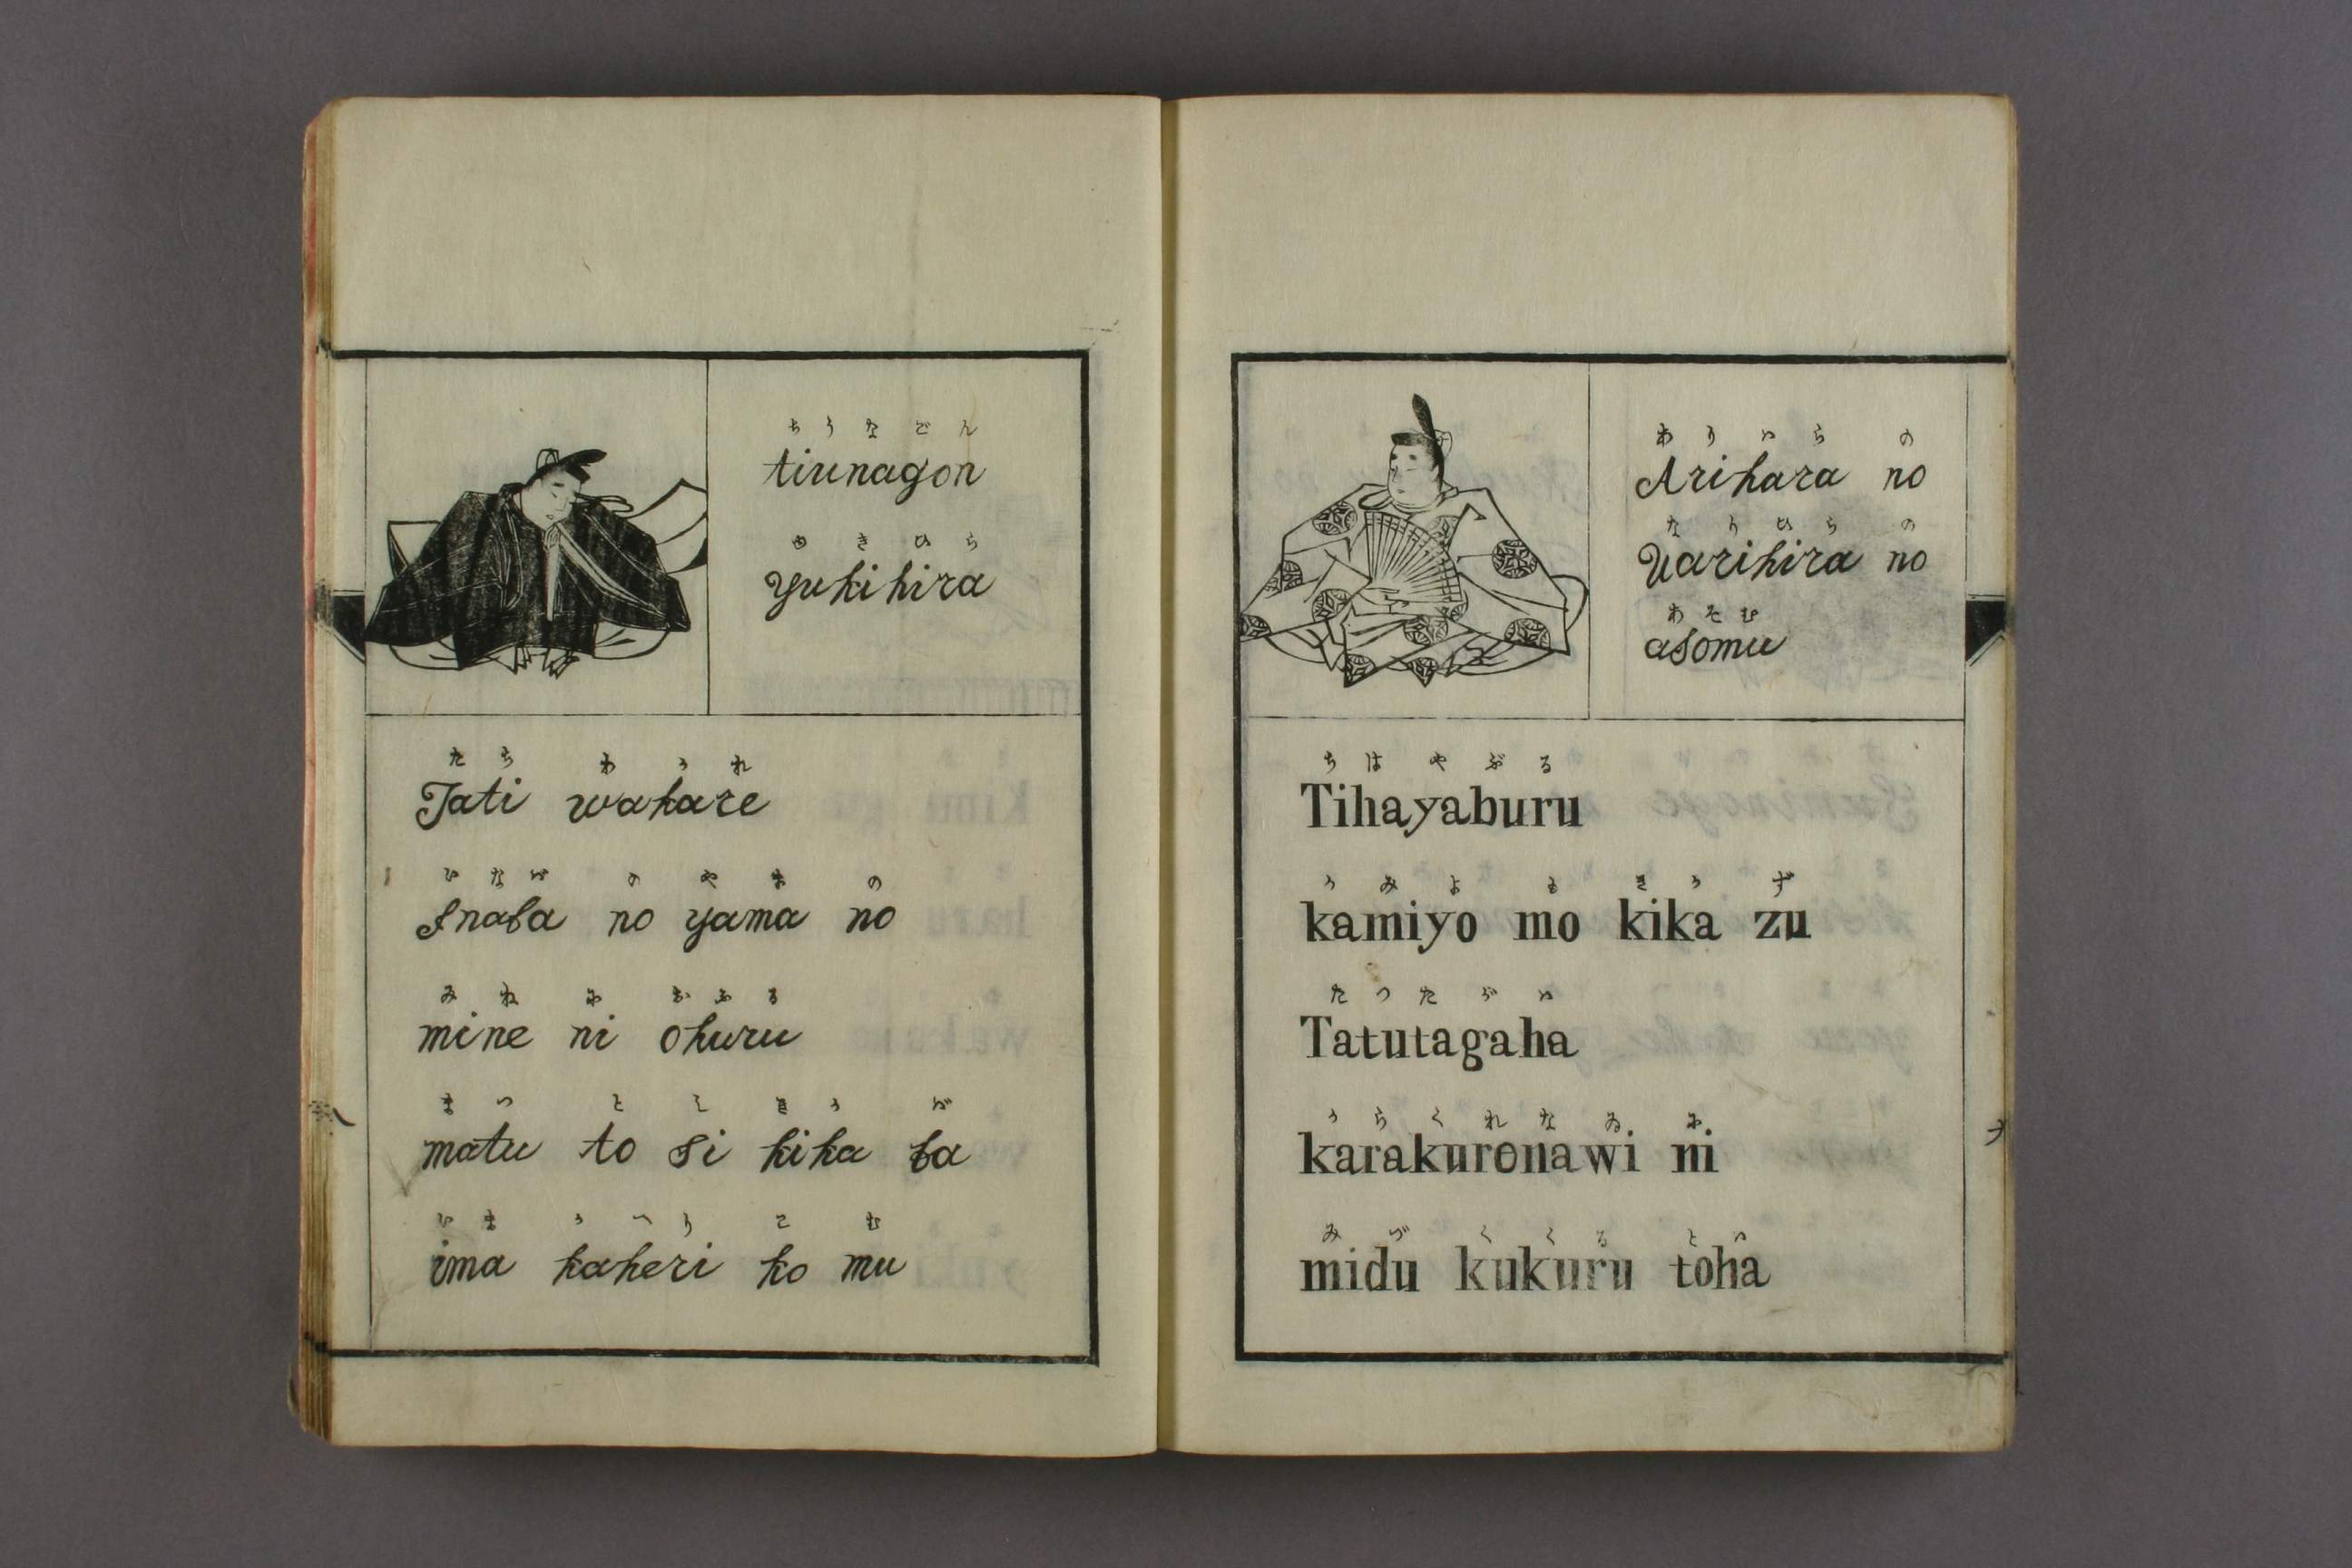 ちうなごん
tiunagon
ゆきひら
yukihira
たち わかれ
Tati wakare
いなば の やま の
Inaba no yama no
みね に おふる
mine ni ohuru
まつ と し きか ば
matu to si kika ba
いま かへり こ む
ima kaheri ko mu
ありはら の
Arihara no
なりひら の
Narihira no
あそむ
asomu
ちはやぶる
Tihayaburu
かみよ も きか ず
kamiyo mo kika zu
たつたがは
Tatutagaha
からくれなゐ に
karakurenawi ni
みづ くくる とは
midu kukuru toha